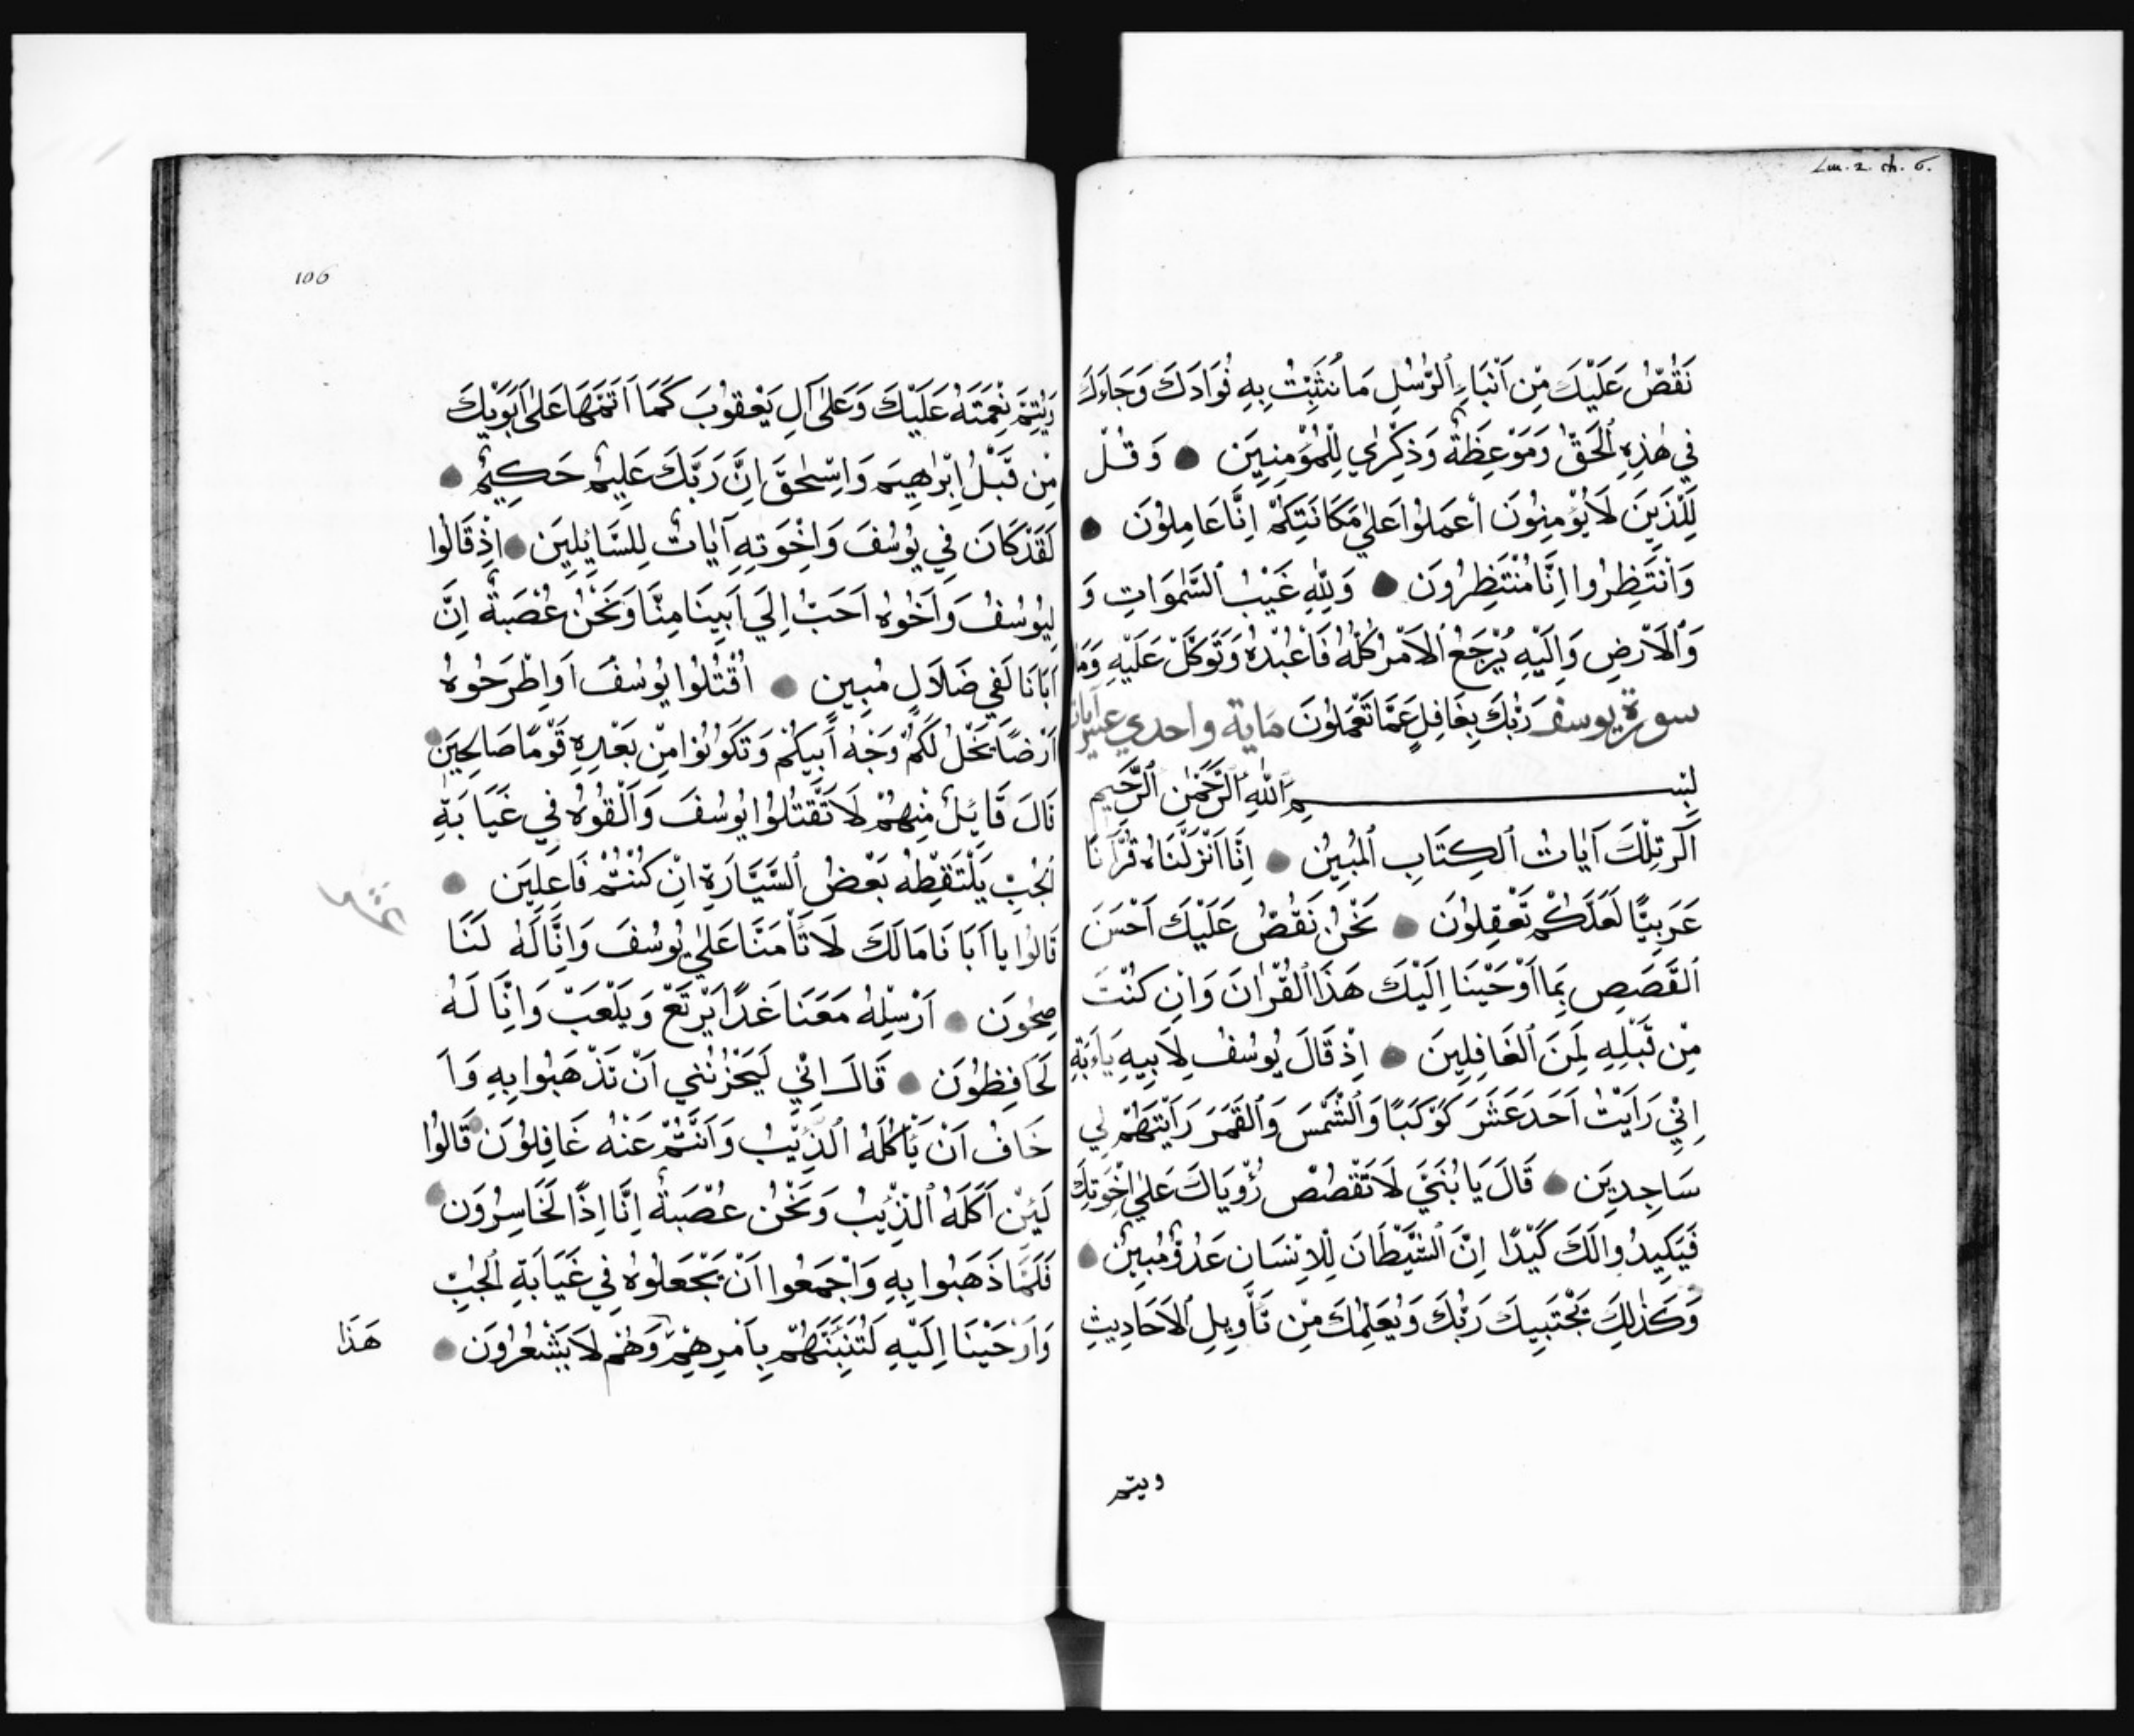 Lm. 2. ch. 6.
نَقُصُّ عَلَيْكَ مِنْ اَنْبَاءِ ٱلرُّسُلِ مَا نُثَبِّتُ بِهِ فُوَادَكَ وَجَاءَكَ
فِي هٰذِهِ ٱلْحَقُّ وَمَوْعِظَةٌ وَذِكْرٰي لِلْمُؤْمِنِيَن وَقُلْ
لِلَّذِيَن لَا يُؤْمِنُوَن اَعْمَلوُا عَلٰي مَكَانَتِكُمْ اِنَّا عَامِلوُنَ
وَانْتَظِرُوا اِنَّا مُنْتَظِرُونَ وَلِلّٰهِ غَيْبُ ٱلسَّمٰوَاتِ وَ
وَٱلْاَرْضِ وَاِلَيْهِ يُرْجَعُ ٱلْاَمْرُ كُلُّهُ فَاعْبُدْهُ وَتَوَكَّلْ عَلَيْهِ وَمَا
سورة يوسف رَبُّكَ بِغَافِلٍ عَمَّا تَعْمَلوُنَ ماية واحدي عشر اٰيات
بِسْمِ ٱللّٰهِ ٱلرَّحْمٰنِ ٱلرَّحِيمِ
آلَر تِلْكَ آيَاتُ ٱلْكِتَابِ ٱلْمُبِيْنِ اِنَّا اَنْزَلْنَاهُ قُرْآنًا
عَرَبِيًّا لَعَلَّكُمْ تَعْقِلوُنَ نَحْنُ نَقُصُّ عَلَيْكَ اَحْسَنَ
ٱلْقَصَصِ بِمَا اَوْحَيْنَا اِلَيْكَ هَذَا ٱلْقُرْاٰنَ وَاِنْ كُنْتَ
مِنْ قَبْلِهِ لَمِنَ ٱلْغَافِلِيَن اِذْ قَالَ يُوسُفُ لِاَبِيهِ يَاءَبَةِ
اِنِّي رَاَيْتُ اَحَدَ عَشَرَ كَوْكَبًا وَٱلشَّمْسَ وَٱلْقَمَرَ رَاَيْتَهُمْ لِي
سَاجِدِيَن قَالَ يَا بُنَيَّ لَا تَقْصُصْ رُؤْيَاكَ عَلٰي اِخْوَتِكَ
فَيَكِيدُوا لَكَ كَيْدًا اِنَّ ٱلشَّيْطَانَ لِلْاِنْسَانِ عَدُوٌّ مُبِيْنٌ
وَكَذٰلِكَ يَجْتَبِيكَ رَبُّكَ وَيُعَلِّمُكَ مِنْ تَأْوِيلِ ٱلْاَحَادِيثِ
ويتم
106
وَيُتِمَّ نِعْمَتَهُ عَلَيْكَ وَعَلٰى آلِ يَعْقُوبَ كَمَا اَتَمَّهَا عَلٰى اَبَوَيْكَ
مِنْ قَبْلُ اِبْرٰهِيَم وَاِسْحٰقَ اِنَّ رَبَّكَ عَلِيمٌ حَكِيمٌ
لَقَدْ كَانَ فِي يُوسُفَ وَاِخْوَتِهِ آيَاتٌ لِلسَّايِلِيَن اِذْ قَالُوا
لِيُوسُفُ وَاَخُوهُ اَحَبُّ اِلَي اَبِينَا مِنَّا وَنَحْنُ عُصْبَةٌ اِنَّ
اَبَانَا لَفِي ضَلَالٍ مُبِينٍ اُقْتُلُوا يُوسُفَ اَوِ اِطْرَحُوهُ
اَرْضًا يَخْلُ لَكُمْ وَجْهُ اَبِيكُمْ وَتَكُونُوا مِنْ بَعْدِهِ قَوْمًا صَالِحِيَن
قَالَ قَايِلٌ مِنْهُمْ لَا تَقْتُلُوا يُوسُفَ وَاَلْقُوهُ فِي غَيَابَةِ
ٱلْجُبِّ يَلْتَقِطْهُ بَعْضُ ٱلسَّيَّارَةِ اِنْ كُنْتُمْ فَاعِلِيَن
قَالُوا يا اَبَانَا مَا لَكَ لَا تَأْمَنَّا عَلٰي يُوسُفَ وَاِنَّا لَهُ لَنَا
صِحُونَ اَرْسِلْهُ مَعَنَا غَدًا يَرْتَعْ وَيَلْعَبْ وَاِنَّا لَهُ
لَحَافِظُونَ قَالَ اِنِّي لَيَحْزُنُنِي اَنْ تَذْهَبُوا بِهِ وَاَ
خَافُ اَنْ يَأْكُلَهُ ٱلذِّيْبُ وَاَنْتُمْ عَنْهُ غَافِلُوَن قَالُوا
لَئِنْ اَكَلَهُ ٱلذِّيْبُ وَنَحْنُ عُصْبَةٌ اِنَّا اِذًا لَخَاسِرُوَن
فَلَمَّا ذَهَبُوا بِهِ وَاَجْمَعُوا اَنْ يَجْعَلُوهُ فِي غَيَابَةِ ٱلْجُبِّ
وَاَوْحَيْنَا اِلَيْهِ لَتُنَبِّئَنَّهُمْ بِاَمْرِهِمْ وَهُمْ لَا يَشْعُرُوَن
هَذَا